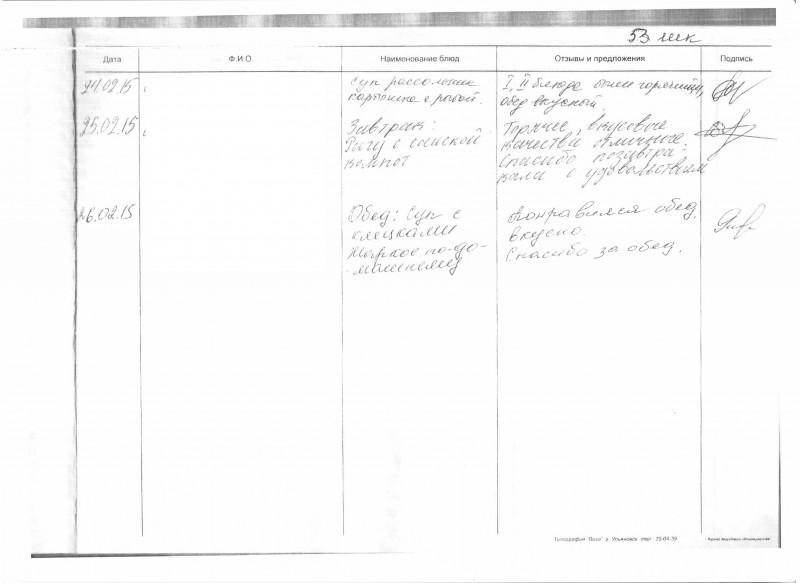 53 шк
Дата Ф.И.О. Наименование блюд Отзывы и предложения Подпись
24.02.15
Суп рассольник
картошка с рыбой.
I, II блюда были горячими,
обед вкусный.
25.02.15
Завтрак:
Рагу с сосиской
компот
Горячее, вкусовые
качества отличные.
Спасибо позавтра-
кали с удовольствием
26.02.15
Обед: Суп с
клецками
Жаркое по-до-
машнему
Понравился обед,
вкусно.
Спасибо за обед.
Типография "Вега" г. Ульяновск тел. 25-04-39